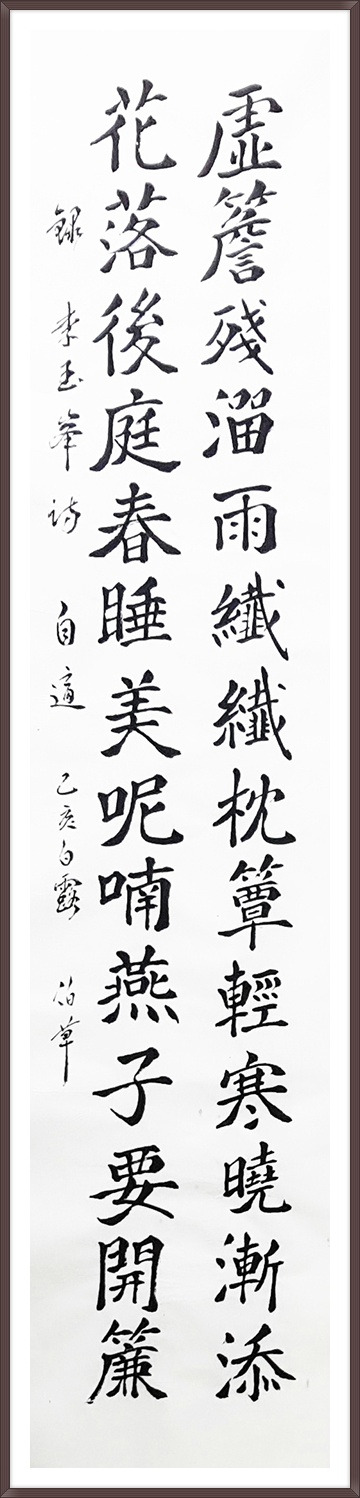 虛簷殘溜雨纖纖枕簟輕寒曉漸添
花落後庭春睡美呢喃燕子要開簾
錄 李玉峯詩 自適 己亥白露